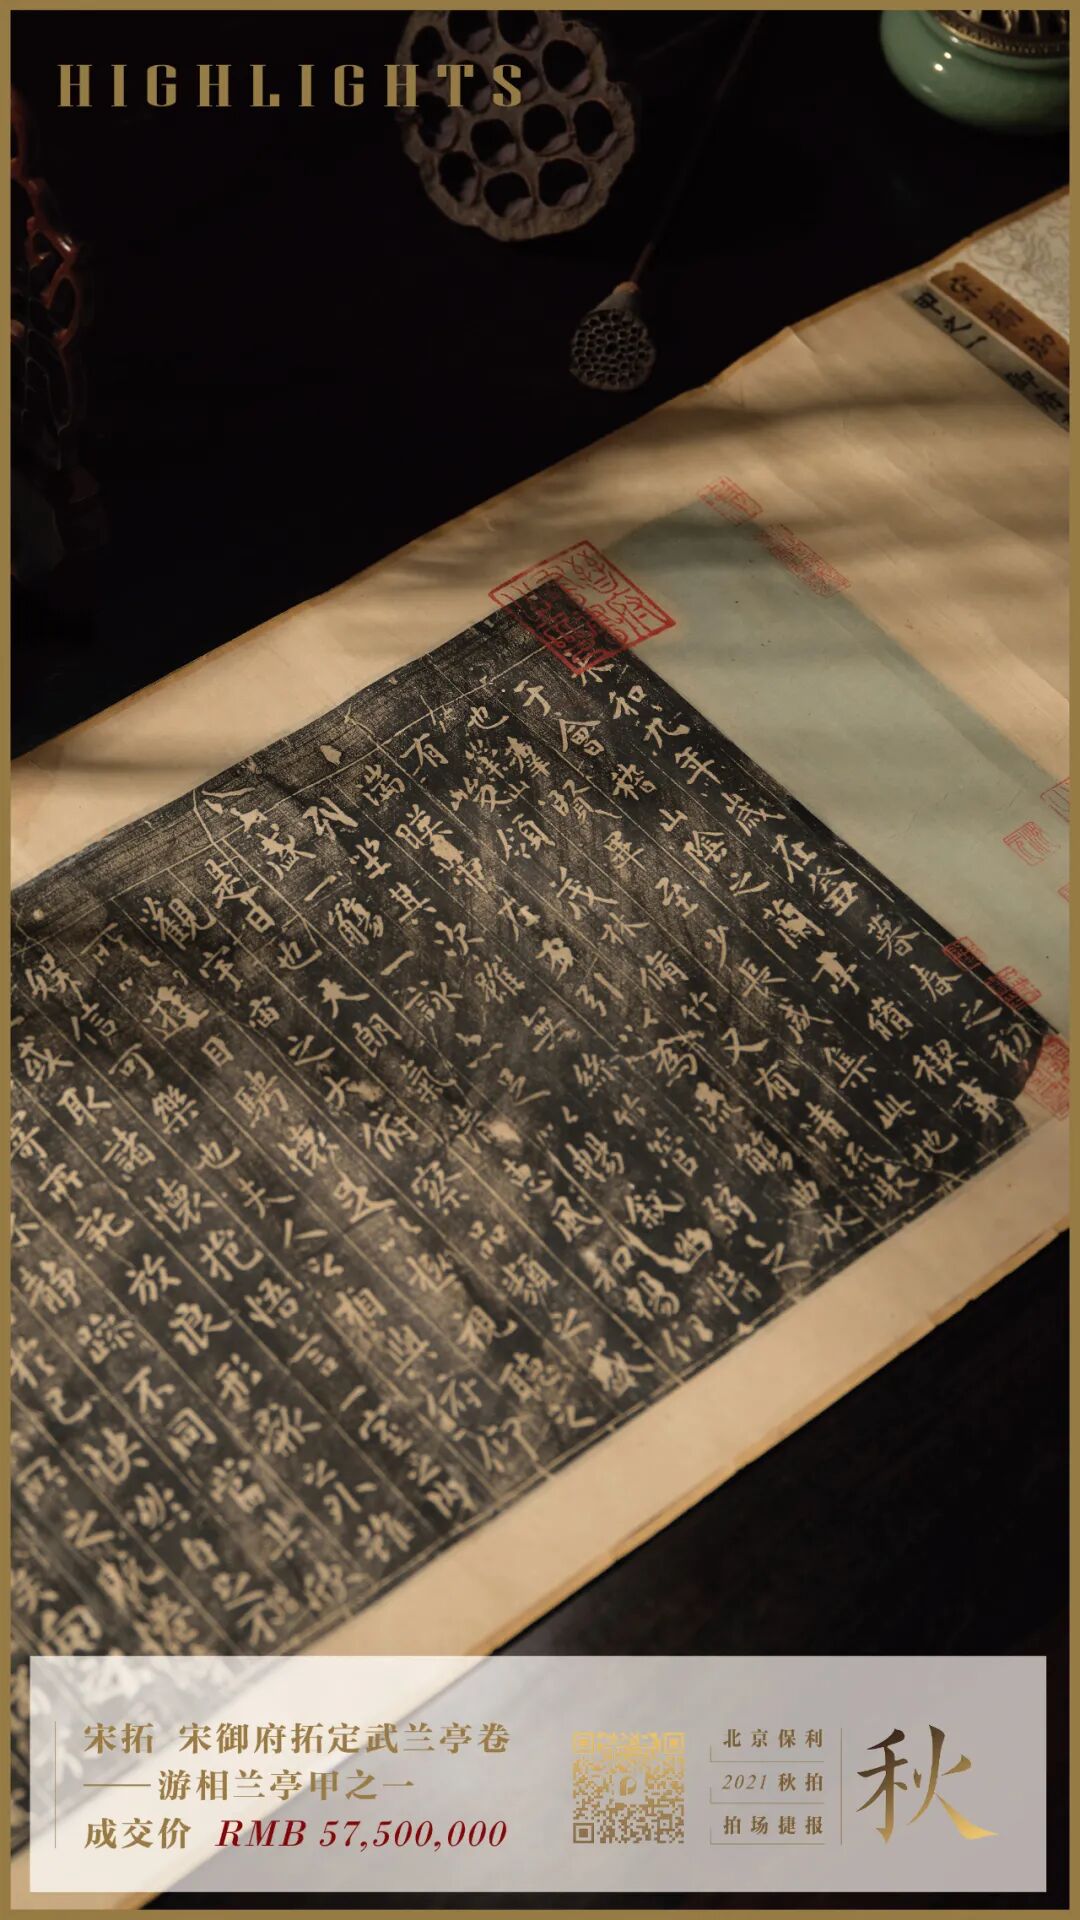 HIGHLIGHTS
甲之一
永和九年歲在癸丑暮春之初
于會稽山陰之蘭亭脩禊事
也羣賢畢至少長咸集此地
有峻領茂林脩竹又有清流激
湍暎帶左右引以為流觴曲水
列坐其次雖無絲竹管弦之
盛一觴一詠足以暢敘幽情
是日也天朗氣清惠風和暢仰
觀宇宙之大俯察品類之盛
所以遊目騁懷足以極視聽之
娛信可樂也夫人之相與俯仰
或取諸懷抱悟言一室之內
寄所託放浪形骸之外雖
靜躁不同當其欣
於己快然自足不
宋拓 宋御府拓定武兰亭卷
——游相兰亭甲之一
成交价 RMB 57,500,000
北京保利
2021 秋拍
拍场捷报
秋